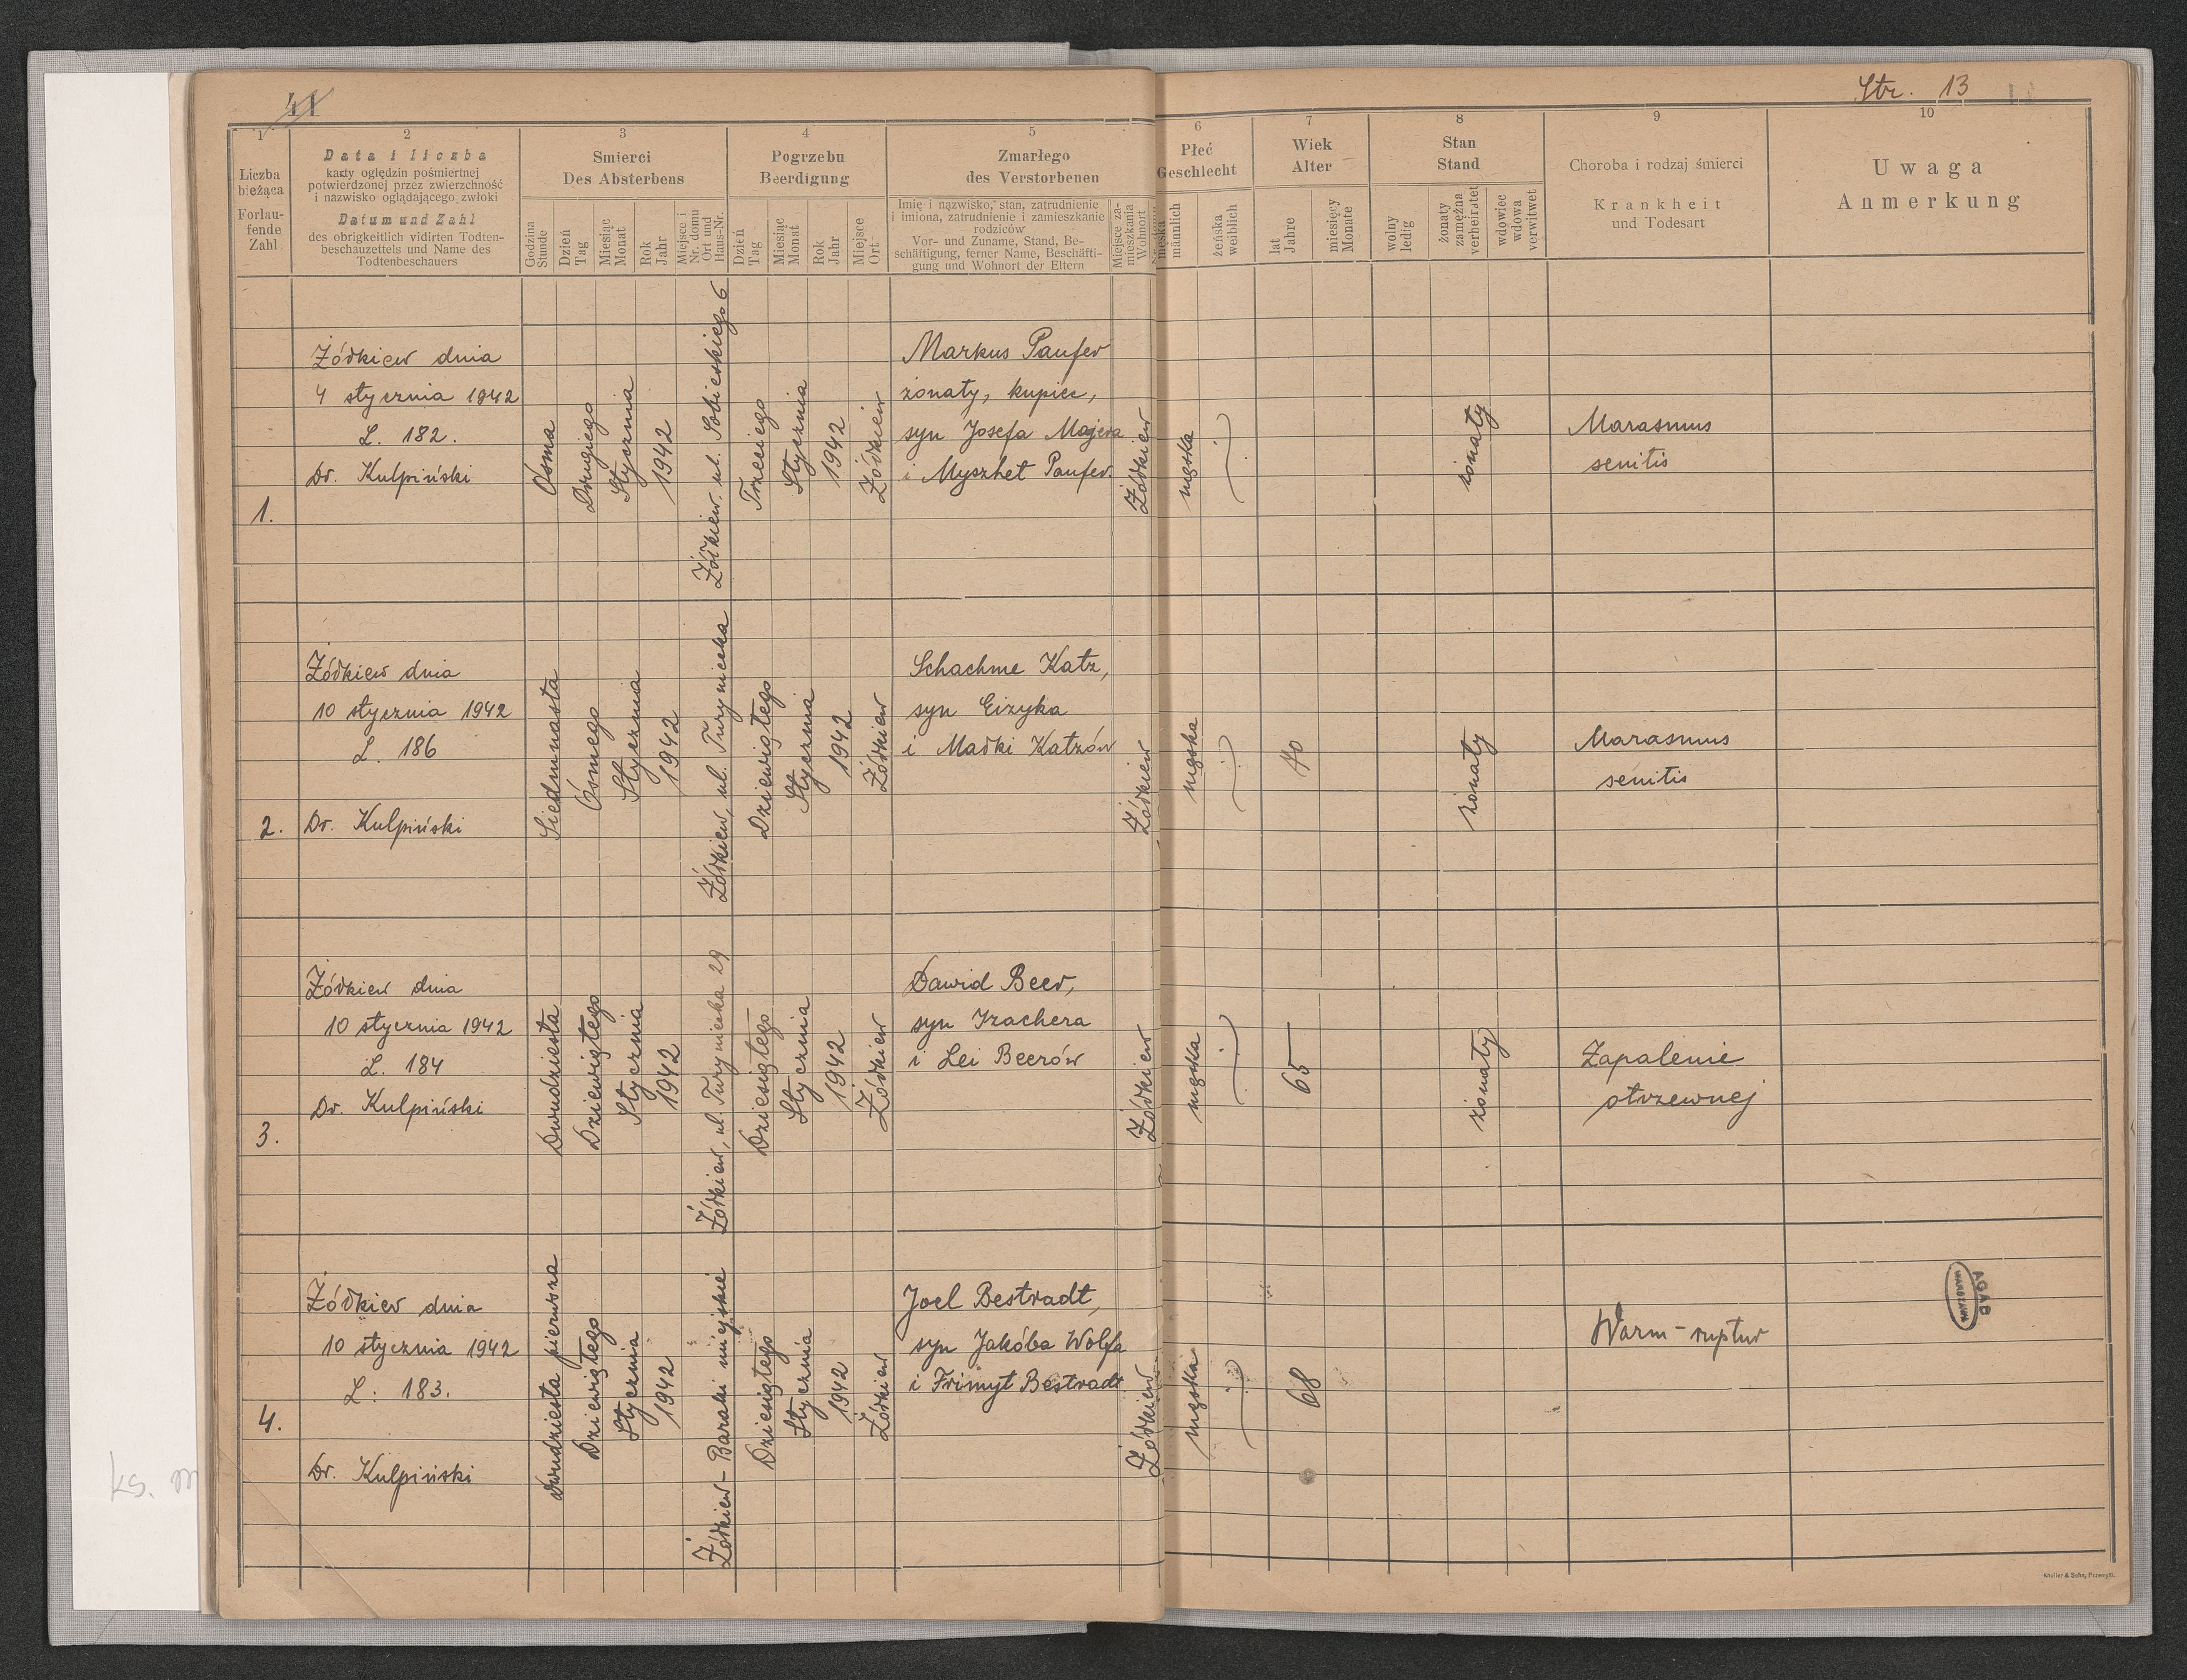 41
Str. 13
1
2
3
4
5
6
7
8
9
10
Liczba
bieżąca
Forlau-
fende
Zahl
Data i liczba
karty oględzin pośmiertnej
potwierdzonej przez zwierzchność
i nazwisko oglądającego zwłoki
Datum und Zahl
des obrigkeitlich vidirten Todten-
beschauzettels und Name des
Todtenbeschauers
Smierci
Des Absterbens
Godzina
Stunde
Dzień
Tag
Miesiąc
Monat
Rok
Jahr
Miejsce i
Nr. domu
Ort und
Haus-Nr.
Pogrzebu
Beerdigung
Dzień
Tag
Miesiąc
Monat
Rok
Jahr
Miejsce
Ort
Zmarłego
des Verstorbenen
Imię i nazwisko, stan, zatrudnienie
i imiona, zatrudnienie i zamieszkanie
rodziców
Vor- und Zuname, Stand, Be-
schäftigung, ferner Name, Beschäfti-
gung und Wohnort der Eltern
Miejsce za-
mieszkania
Wohnort
Płeć
Geschlecht
męska
männlich
żeńska
weiblich
Wiek
Alter
lat
Jahre
miesięcy
Monate
Stan
Stand
wolny
ledig
żonaty
zamężna
verheiratet
wdowiec
wdowa
verwitwet
Choroba i rodzaj śmierci
Krankheit
und Todesart
Uwaga
Anmerkung
1.
Żółkiew dnia
4 stycznia 1942
L. 182.
Dr. Kulpiński
Ósma
Drugiego
Stycznia
1942
Żółkiew ul. Sobieskiego 6
Trzeciego
Stycznia
1942
Żółkiew
Markus Paufer
żonaty, kupiec,
syn Josefa Majera
i Myszket Paufer.
Żółkiew
męska
żonaty
Marasmus
senitis
2.
Żółkiew dnia
10 stycznia 1942
L. 186
Dr. Kulpiński
Siedmnasta
Ósmego
Stycznia
1942
Żółkiew, ul. Turyniecka
Dziewiątego
Stycznia
1942
Żółkiew
Schachme Katz,
syn Eizyka
i Maćki Katzów
Żółkiew
męska
70
żonaty
Marasmus
senitis
3.
Żółkiew dnia
10 stycznia 1942
L. 184
Dr. Kulpiński
Dwudziesta
Dziewiątego
Stycznia
1942
Żółkiew, ul. Turyniecka 29
Dziesiątego
Stycznia
1942
Żółkiew
Dawid Beer,
syn Izachera
i Lei Beerów
Żółkiew
męska
65
żonaty
Zapalenie
otrzewnej
4.
Żółkiew dnia
10 stycznia 1942
L: 183.
Dr. Kulpiński
Dwudziesta pierwsza
Dziewiątego
Stycznia
1942
Żółkiew - Baraki miejskie
Dziesiątego
Stycznia
1942
Żółkiew
Joel Bestradt,
syn Jakóba Wolfa
i Frimyt Bestradt
Żółkiew
męska
68
Warm-ruptur
AGAD
WARSZAWA
Knoller & Sohn, Przemyśl.
ks. m